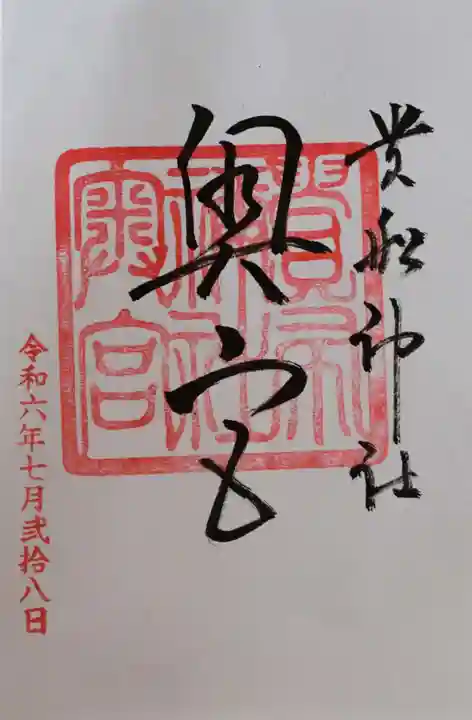 貴船神社
奥宮
貴布禰神社奥宮
令和六年七月弐拾八日